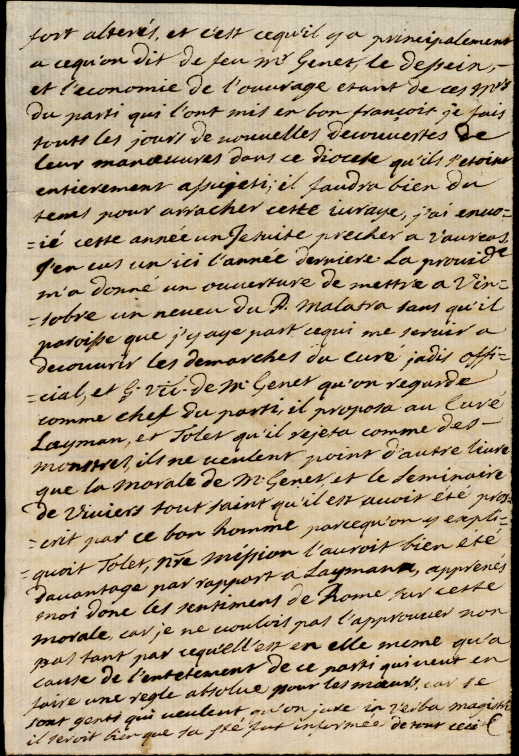 fort alterés, et c'est cequ'il y a principalement
a cequ'on dit de feu mr Genet, le dessein,
et l'economie de l'ouvrage etant de ces mrs
du parti qui l'ont mis en bon françois je fais
touts les jours de nouvelles decouvertes de
leur manœuvres dans ce diocese qu'ils s'etoint
entierement assugeti; il faudra bien du
tems pour arracher cette iuraye, j'ai enuo=
=ié cette année un Jesuite precher a Vaureas,
J'en eus un ici l'année derniere. La prouidce
m'a donné un ouverture de mettre a Vin=
=sobre un neueu du P. Malatra sans qu'il
paroisse que j'y aye part cequi me seruir a
decouurir les demarches du curé jadis offi=
=cial, et G. vic. de Mr Genet qu'on regarde
comme chef du parti, il proposa au Curé
Layman, et Tolet qu'il rejeta comme des
monstres, ils ne ueulent point d'autre liure
que la morale de Mr Genet, et le seminaire
de Viviers tout saint qu'il est auoit été pros=
=crit par ce bon homme parcequ'on y expli=
=quoit Tolet, nre mission l'auroit bien été
davantage par rapport a Laymann, apprenés
moi donc les sentimens de Rome sur cette
morale, car je ne uoulois pas l'approuver non
pas tant par cequ'elle est en elle meme qu'a
cause de l'entetement de ce parti qui ueut en
faire une regle absolue pour les mœurs, car se
sont gents qui ueulent qu'on jure in verba magistri
il seroit bien que sa sté fut informée de tout ceci